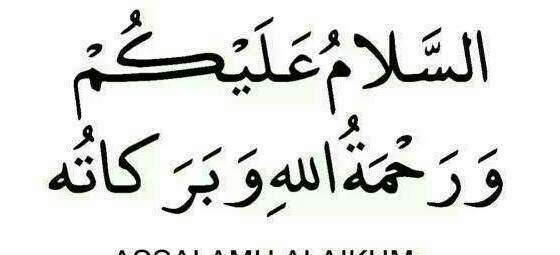 السَّلامُ عَلَيْكُمْ
وَرَحْمَةُ اللهِ وَبَرَكاتُه
ASSALAMU ALAIKUM